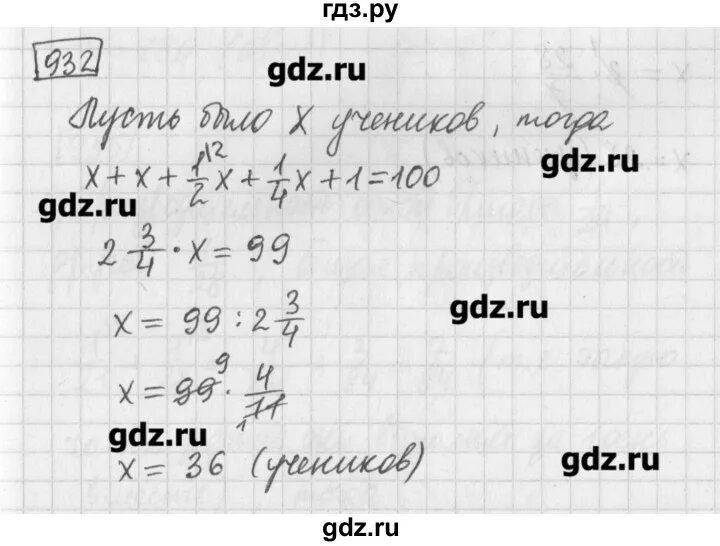 гдз.ру
932
gdz.ru
Пусть было X учеников, тогда
gdz.ru
x + x + 1/2 x + 1/4 x + 1 = 100
gdz.ru
2 3/4 · x = 99
gdz.ru
x = 99 : 2 3/4
x = 99 9 · 4/11 1
gdz.ru
x = 36 (учеников)
gdz.ru
gdz.ru